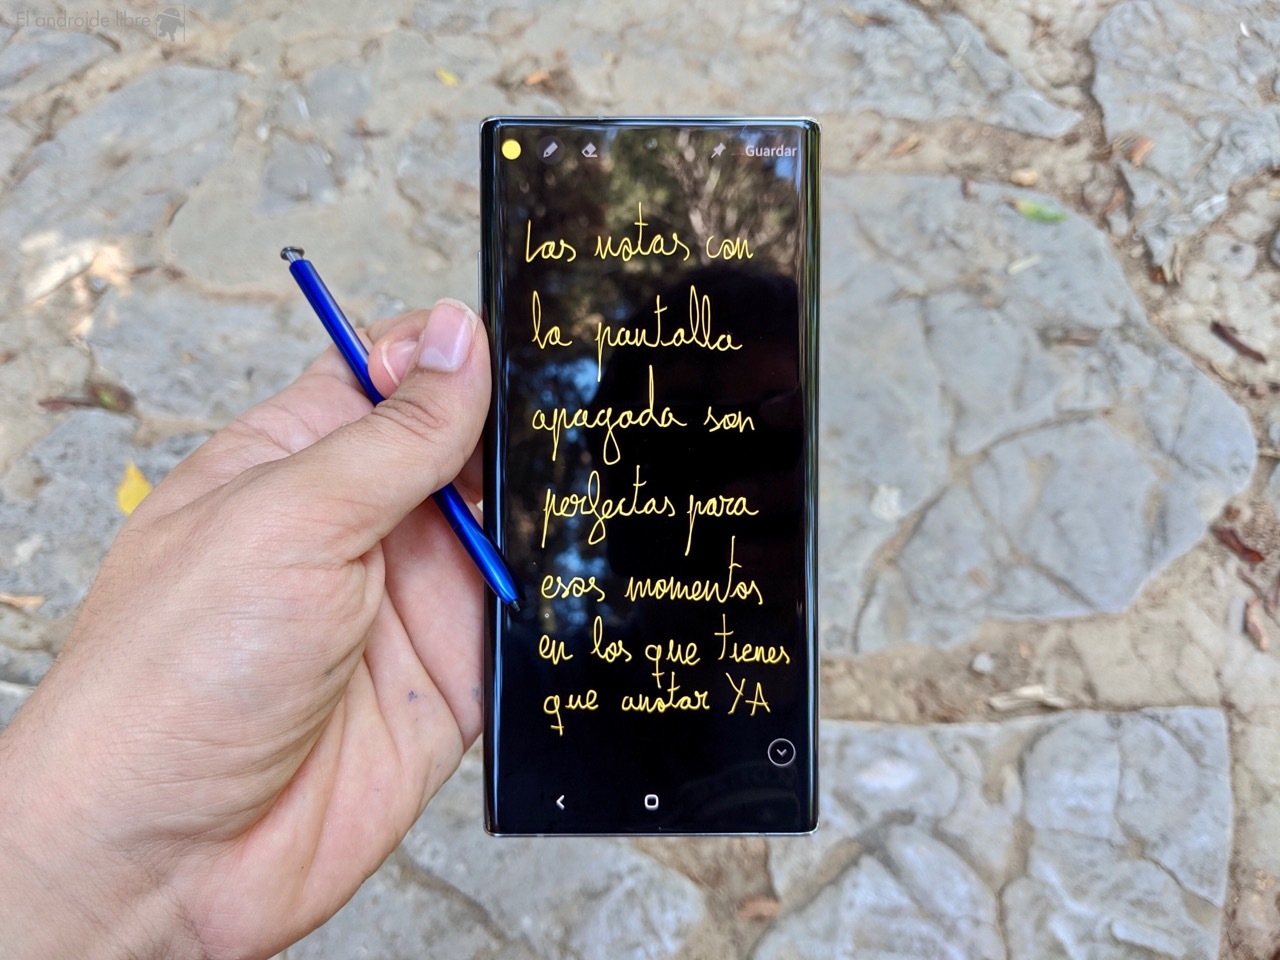 El androide libre
Guardar
Las notas con
la pantalla
apagada son
perfectas para
esos momentos
en los que tienes
que anotar YA